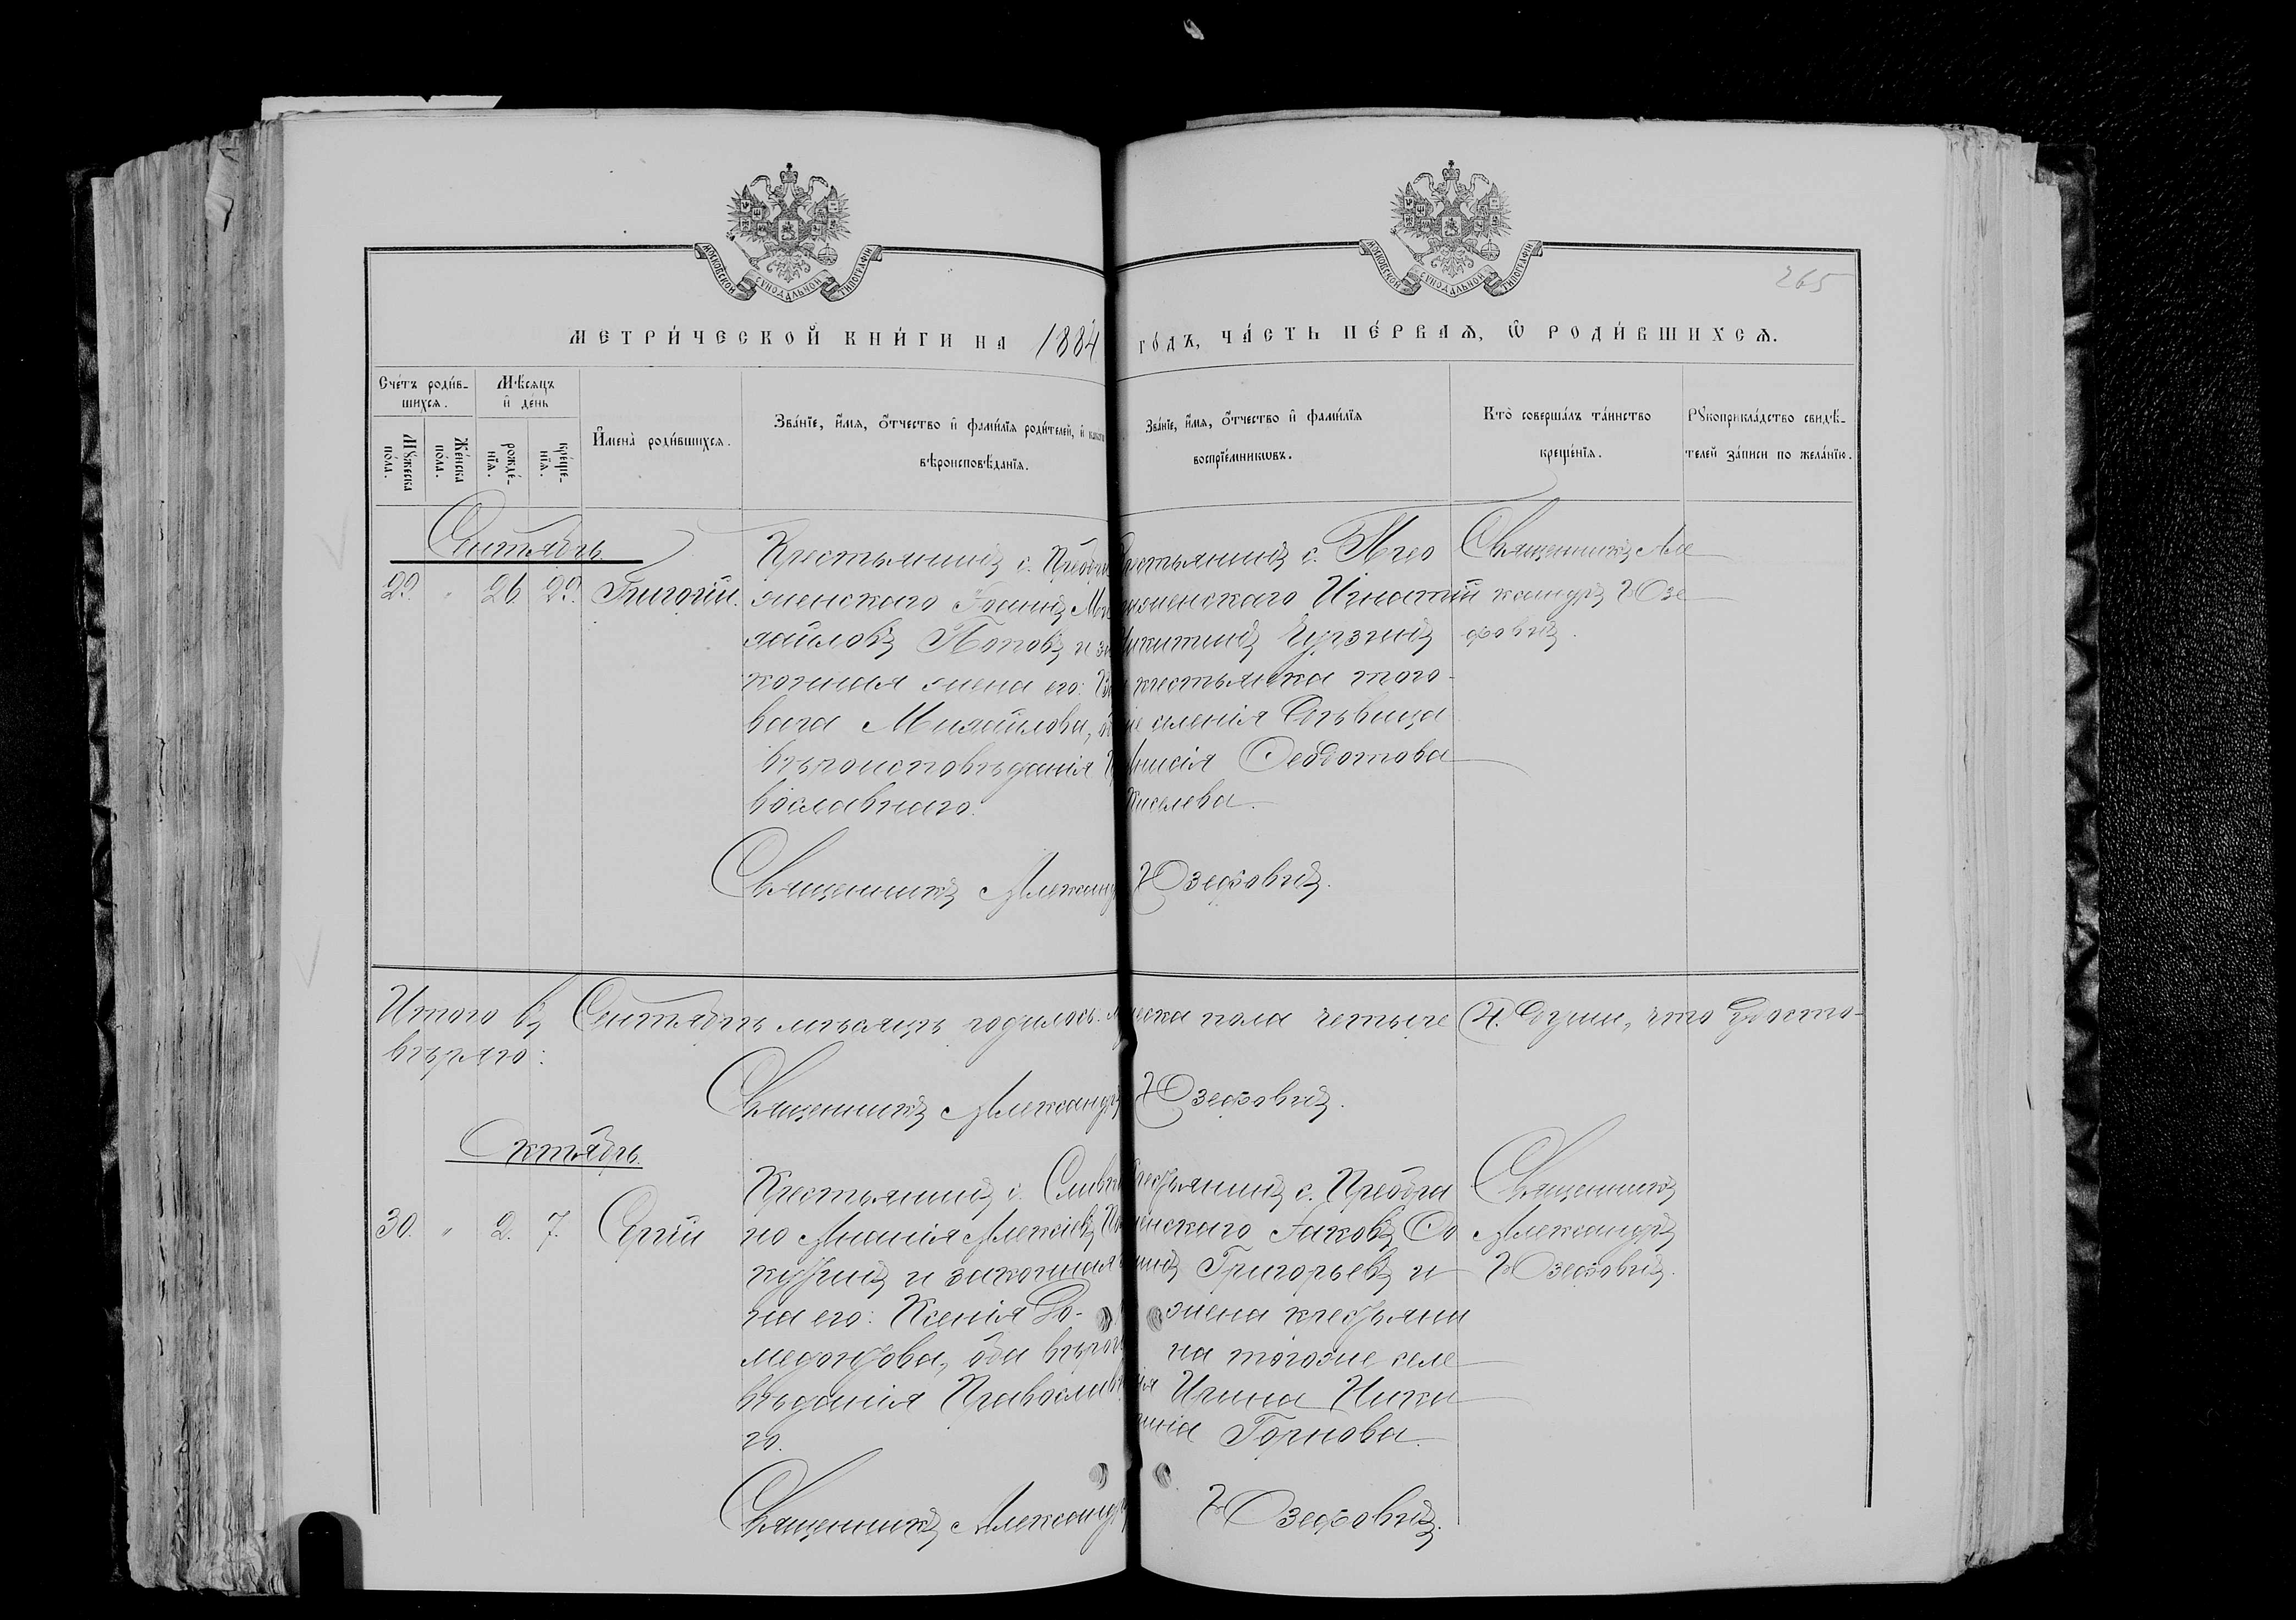 МОСКОВСКОЙ СѴНОДАЛЬНОЙ ТИПОГРАФІИ
МОСКОВСКОЙ СѴНОДАЛЬНОЙ ТИПОГРАФІИ
265
МЕТРИ́ЧЕСКОЙ КНИ́ГИ НА 1884 го́дъ, ЧА́СТЬ ПЕ́РВАѦ, Ѿ РОДИ́ВШИХСѦ.
Сче́тъ роди́в-
шихсѧ.
Мꙋжеска
по́ла.
Же́нска
по́ла.
Мѣ́сѧцъ
и҆ де́нь
рожде́-
нїѧ.
креще́-
нїѧ.
И҆мена̀ роди́вшихсѧ.
Зва́нїе, и҆́мѧ, ѻ҆́тчество и҆ фами́лїѧ роди́телей, и҆
вѣроисповѣ́данїѧ.
Зва́нїе, и҆́мѧ, ѻ҆́тчество и҆ фами́лїѧ
воспрїе́мникѡвъ.
Кто̀ соверша́лъ та́инство
креще́нїѧ.
Рꙋкоприкла́дство свидѣ́-
телей за́писи по жела́нїю.
Сентябрь
29. " 26. 29. Григорій.
Крестьянинъ с. Преобра
женскаго Іоаннъ Ми
хайловъ Поповъ и за
конная жена его: Вар
вара Михайлова, оба
вѣроисповѣданія Пра
вославнаго.
Крестьянинъ с. Прео
браженскаго Игнатій
Никитинъ
крестьянка того
же селенія дѣвица
Феодотова
Киселева.
Священникъ Але
ксандръ Юзе
фовичъ.
Священникъ Александръ Юзефовичъ.
Итого въ Сентябрѣ мѣсяцѣ родилось мужеска пола четыре (4. души, что удосто-
вѣряю:
Священникъ Александръ Юзефовичъ.
Октябрь.
30. " 2. 7. Сергій
Крестьянинъ с. Сливки
но Ананія Алексіевъ
и законная же
на его: Ксенія До-
медонтова, оба вѣроис
вѣданія Православна
го.
Крестьянинъ с. Преобра
женскаго Іаковъ
Григорьевъ и
жена крестьяни
на тогоже селе
нія Ирина Ники
тина Горнова.
Священникъ
Александръ
Юзефовичъ.
Священникъ Александръ Юзефовичъ.